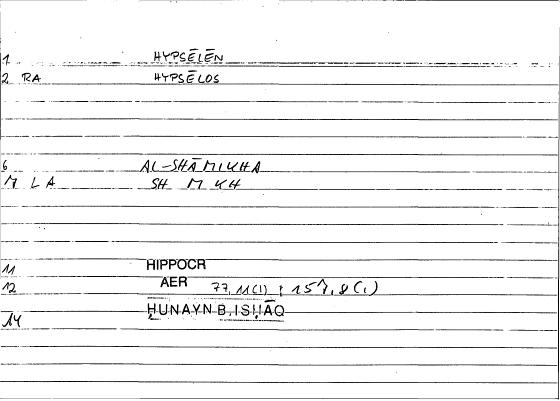 1 HYPSĒLĒN
2 RA HYPSĒLOS
6 AL-SHĀMIKHA
M L A SH M KH
11 HIPPOCR
12 AER 77, 11(1) ; 157, 8(1)
14 ḤUNAYN B. ISḤĀQ